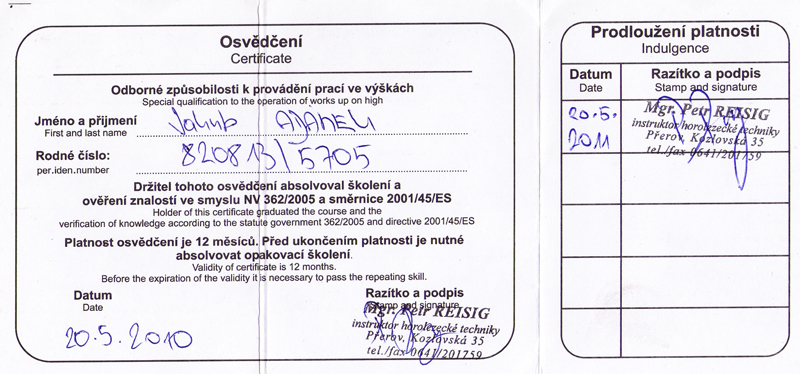 Osvědčení
Certificate
Odborné způsobilosti k provádění prací ve výškách
Special qualification to the operation of works up on high
Jméno a přijmení
First and last name
Jakub
Rodné číslo:
per.iden.number
820813/5705
Držitel tohoto osvědčení absolvoval školení a
ověření znalostí ve smyslu NV 362/2005 a směrnice 2001/45/ES
Holder of this certificate graduated the course and the
verification of knowledge according to the statute government 362/2005 and directive 2001/45/ES
Platnost osvědčení je 12 měsíců. Před ukončením platnosti je nutné
absolvovat opakovací školení.
Validity of certificate is 12 months.
Before the expiration of the validity it is necessary to pass the repeating skill.
Datum
Date
20.5.2010
Razítko a podpis
Stamp and signature
Mgr. Petr REISIG
instruktor horolezecké techniky
Přerov, Kozlovská 35
tel./fax 0641/201759
Prodloužení platnosti
Indulgence
Datum
Date
Razítko a podpis
Stamp and signature
20.5.
2011
Mgr. Petr REISIG
instruktor horolezecké techniky
Přerov, Kozlovská 35
tel./fax 0641/201759